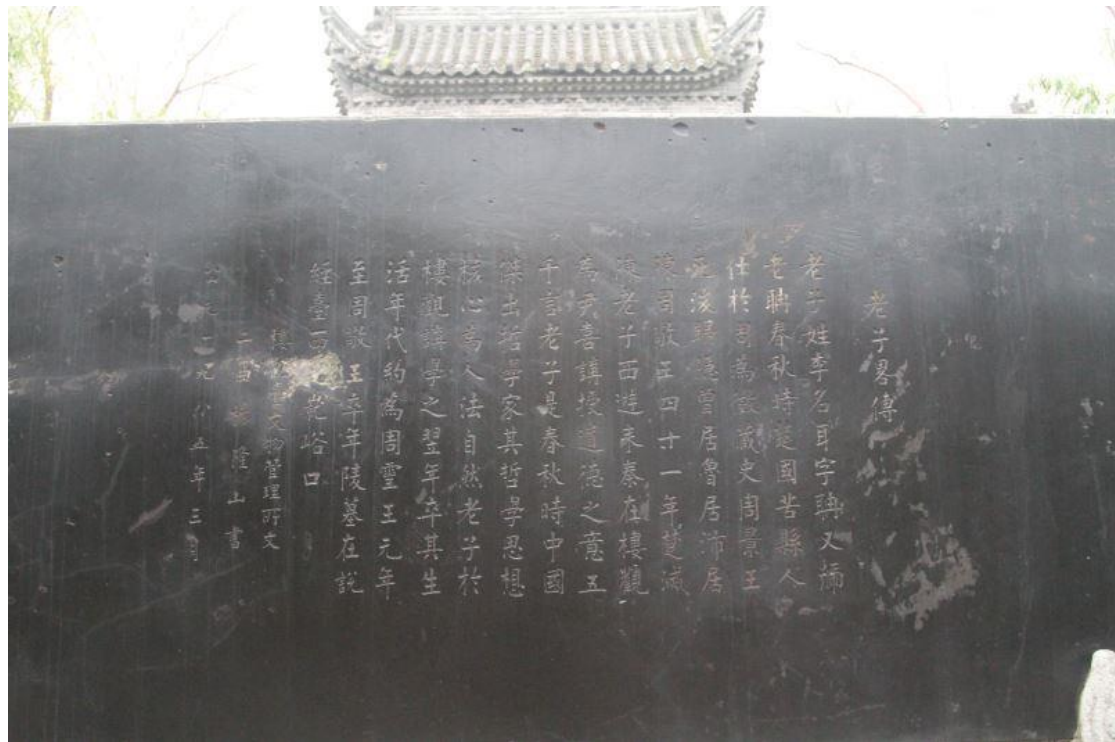 老子畧傳
老子姓李名耳字聃又稱
老聃春秋時楚國苦縣人
仕於周為守藏史周景王
死後歸隱曾居魯居沛居
陳周敬王四十一年楚滅
陳老子西遊來秦在樓觀
為尹喜講授道德之意五
千言老子是春秋時中國
傑出哲學家其哲學思想
核心為人法自然老子於
樓觀講學之翌年卒其生
活年代約為周靈王元年
至周敬王卒年陵墓在説
經臺西 峪口
樓 文物管理所文
隆山書
公元一九八五年三月